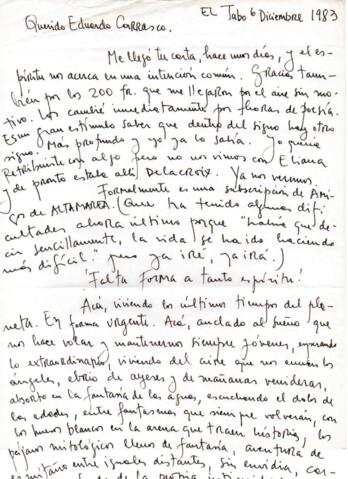 EL Tabo 6 Diciembre 1983
Querido Eduardo Carrasco.
Me llegó tu carta, hace unos días, y el es-
píritu nos acerca en una intención común. Gracias tam-
bién por los 200 fr. que me llegaron por el aire sin mo-
tivo. Los cambié inmediatamente por horas de poesía.
Es un gran estímulo saber que dentro del signo hay otro
signo más profundo y yo ya lo sabía. Yo quería
Retribuirte con algo pero no nos vimos con Eliana
y de pronto estaba allá DELACROIX. Ya nos veremos.
Formalmente es una subscripción de Ami-
gos de ALTAMAREA. (Que ha tenido algunas difi-
cultades ahora último porque "había que de-
cir sencillamente, la vida se ha ido haciendo
más difícil" pero ya iré, ya irá.)
¡Falta Forma a tanto espíritu!
Acá, viviendo los últimos tiempos del pla-
neta. En forma urgente. Acá, anclado al sueño que
nos hace volar y mantenernos siempre jóvenes, esperando
lo extraordinario, viviendo del aire que nos envían los
ángeles, ebrio de ayeres y de mañanas venideras,
absorto en la fantasía de las aguas, escuchando el dolor de
las edades, entre fantasmas que siempre volverán, con
los huesos blancos en la arena que traen historias, los
pájaros mitológicos llenos de fantasía, aventura de
ermitaño entre iguales distantes, sin envidia, con-
de la